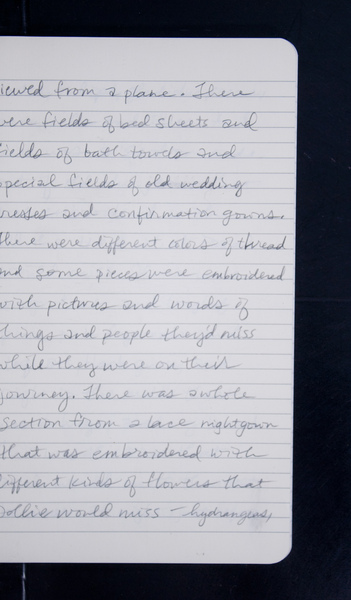 iewed from a plane. There
were fields of bed sheets and
fields of bath towels and
special fields of old wedding
resses and confirmation gowns.
there were different colors of thread
and some pieces were embroidered
with pictures and words of
things and people they'd miss
while they were on their
journey. There was a whole
section from a lace nightgown
that was embroidered with
different kinds of flowers that
Dollie world miss - hydrangeas,